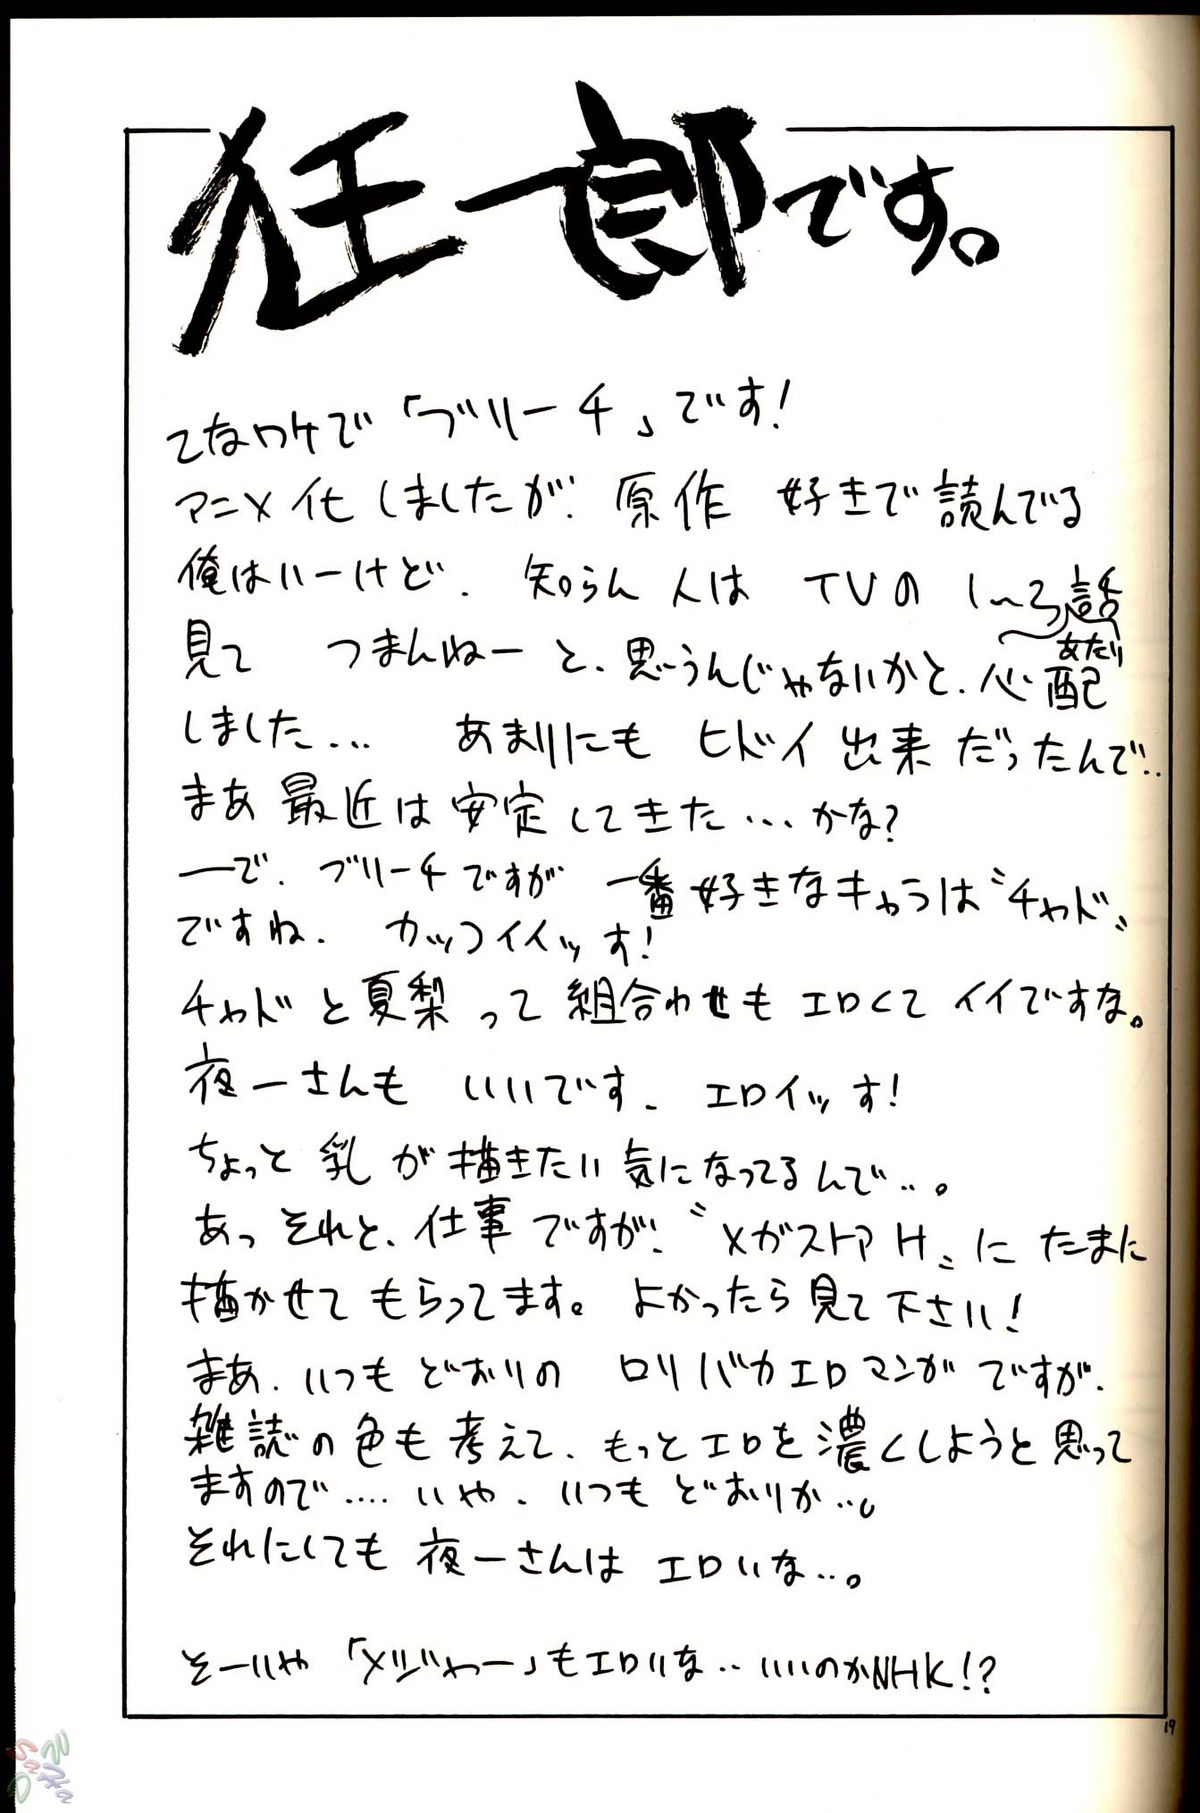 狂一郎です。
てなワケで「ブリーチ」です!
アニメ化しましたが、原作 好きで読んでる
俺はいーけど、知らん人は TVの 1〜3話
あたり
見て つまんねーと、思うんじゃないかと、心配
しました… あまりにも ヒドイ出来だったんで‥
まあ最近は安定してきた…かな?
ーで、ブリーチですが 一番好きなキャラは〝チャド〟
ですね、カッコイイッす!
チャドと夏梨って組合わせもエロくてイイですな。
夜一さんも いいです、エロイッす!
ちょっと乳が描きたい気になってるんで‥。
あっそれと、仕事ですが、〝メガストアH〟にたまに
描かせてもらってます。よかったら見て下さい!
まあ、いつもどおりの ロリバカエロマンガですが、
雑誌の色も考えて、もっとエロを濃くしようと思って
ますので‥‥いや、いつもどおりか‥。
それにしても夜一さんは エロいな‥。
そーいや「メジャー」もエロいな‥いいのかNHK!?
19